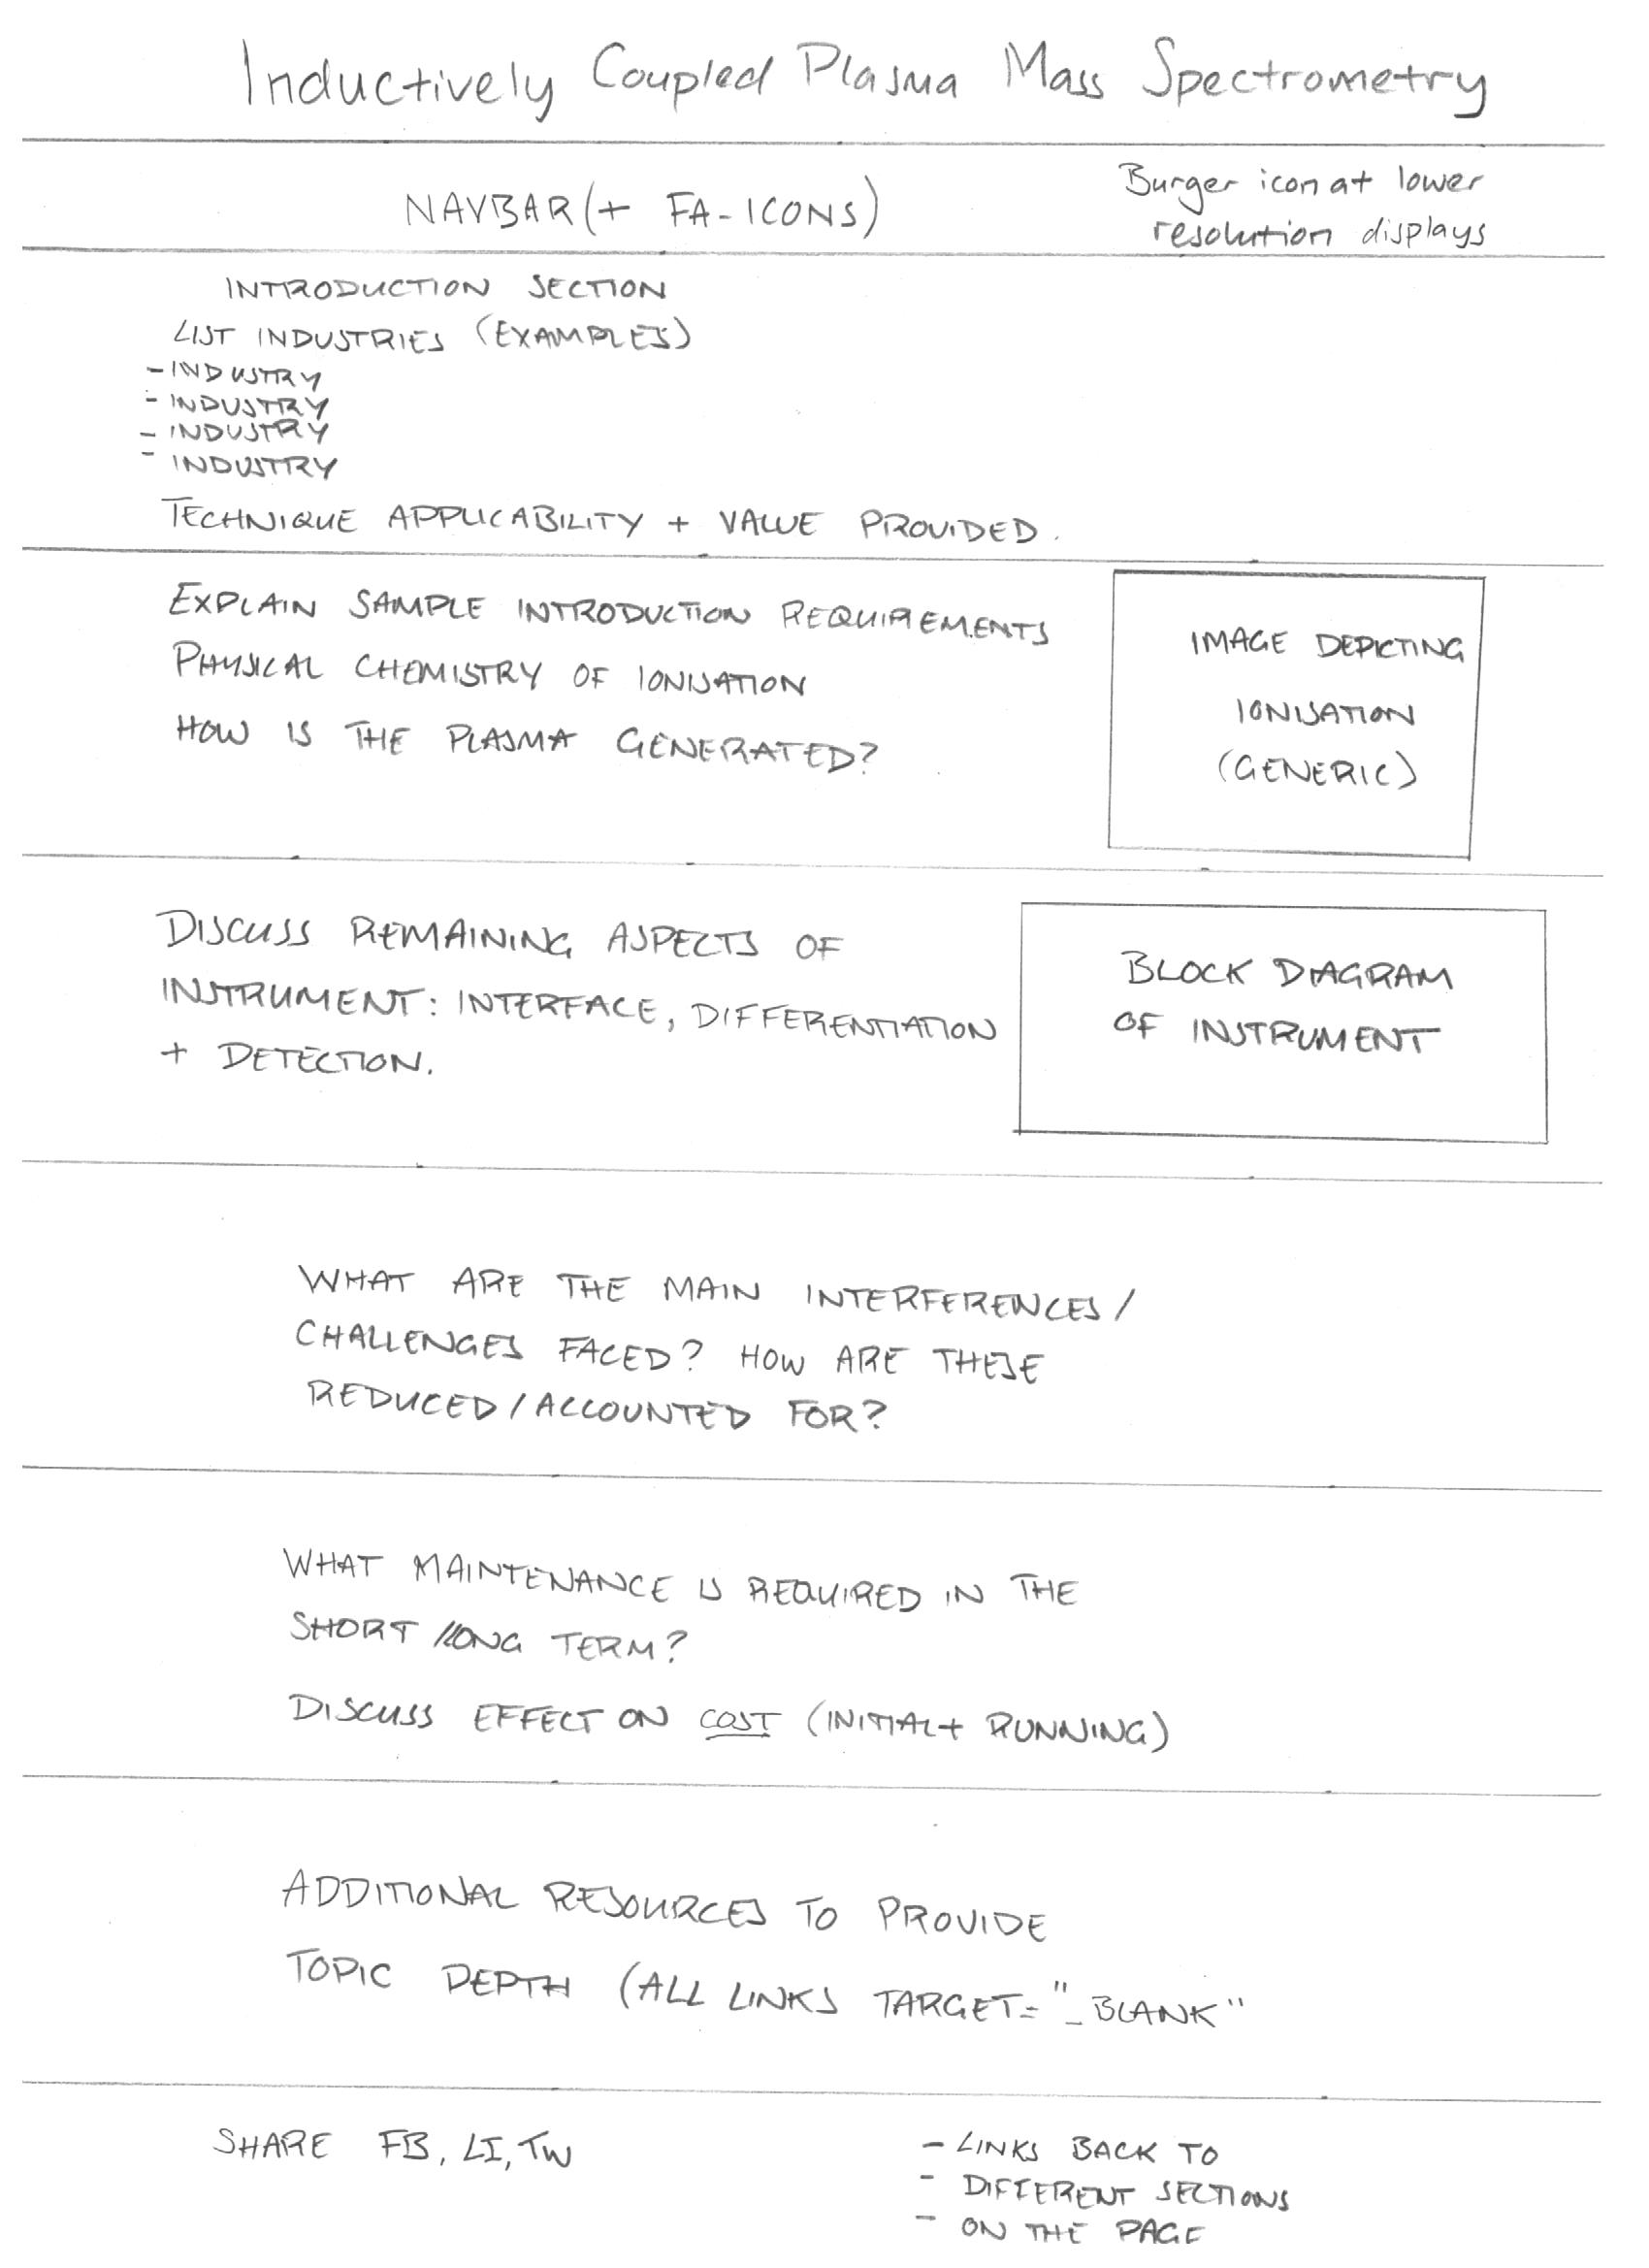 Inductively Coupled Plasma Mass Spectrometry
NAVBAR (+ FA-ICONS)
Burger icon at lower
resolution displays
INTRODUCTION SECTION
LIST INDUSTRIES (EXAMPLES)
- INDUSTRY
- INDUSTRY
- INDUSTRY
- INDUSTRY
TECHNIQUE APPLICABILITY + VALUE PROVIDED.
EXPLAIN SAMPLE INTRODUCTION REQUIREMENTS
PHYSICAL CHEMISTRY OF IONISATION
HOW IS THE PLASMA GENERATED?
IMAGE DEPICTING
IONISATION
(GENERIC)
DISCUSS REMAINING ASPECTS OF
INSTRUMENT: INTERFACE, DIFFERENTIATION
+ DETECTION.
BLOCK DIAGRAM
OF INSTRUMENT
WHAT ARE THE MAIN INTERFERENCES/
CHALLENGES FACED? HOW ARE THESE
REDUCED/ACCOUNTED FOR?
WHAT MAINTENANCE IS REQUIRED IN THE
SHORT/LONG TERM?
DISCUSS EFFECT ON COST (INITIAL + RUNNING)
ADDITIONAL RESOURCES TO PROVIDE
TOPIC DEPTH (ALL LINKS TARGET="_BLANK"
SHARE FB, LI, TW
- LINKS BACK TO
- DIFFERENT SECTIONS
- ON THE PAGE